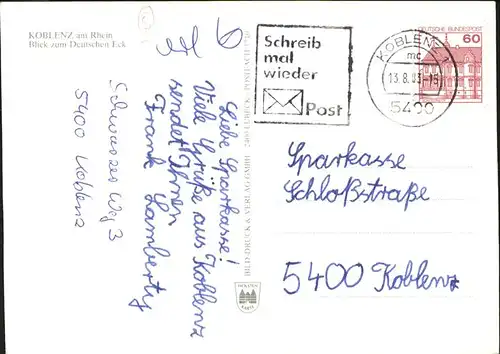 KOBLENZ am Rhein
Blick zum Deutschen Eck
Liebe Sparkasse!
Viele Grüße aus Koblenz
sendet Ihnen
Frank Lamberty
Schwarzer Weg 3
5400 Koblenz
BILD-DRUCK & VERLAG GMBH
Schreib
mal
wieder
Post
KOBLENZ 1
mc
13.8.83-15
5400
DEUTSCHE BUNDESPOST
60
Sparkasse
Schloßstraße
5400 Koblenz